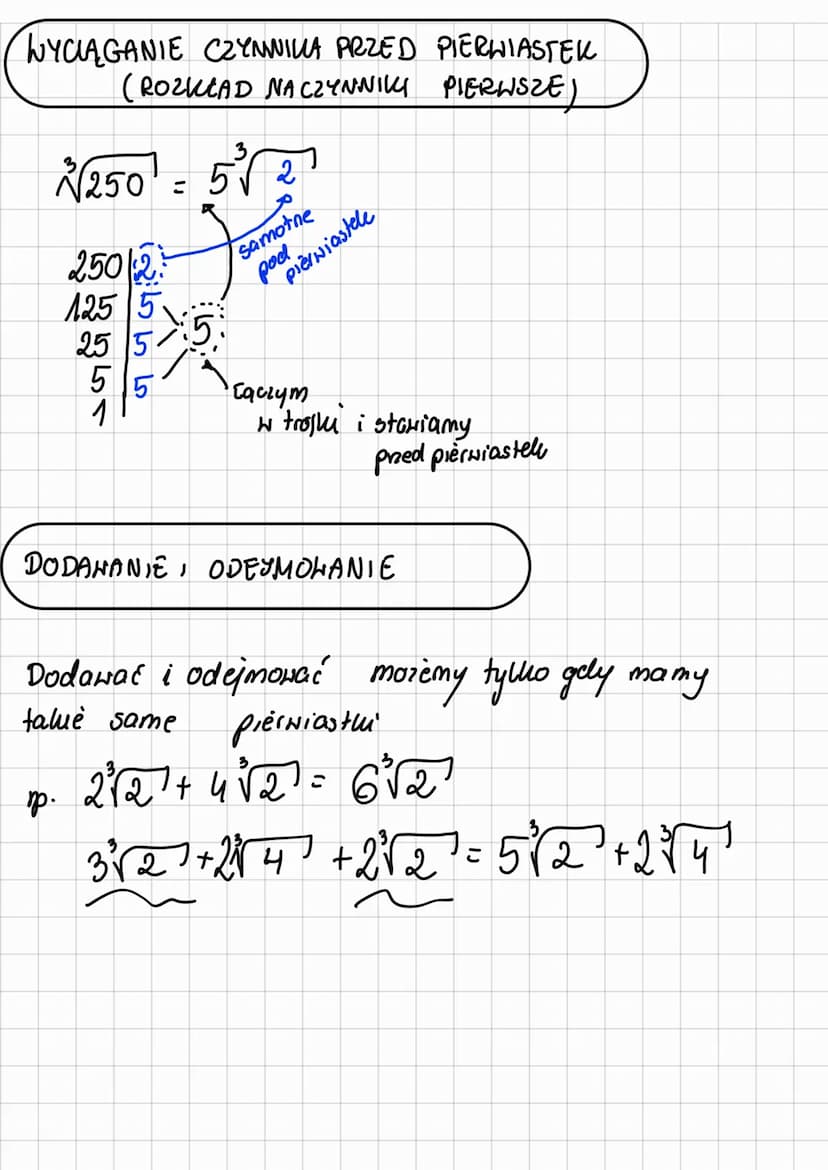 WYCIĄGANIE CZYNNIKA PRZED PIERWIASTEK
(ROZKŁAD NA CZYNNIKI PIERWSZE)
∛250 = 5∛2
250 | 2
125 | 5
25 | 5
5 | 5
1 |
5
samotne
pod
pierwiastek
Łączym
w trójki i stawiamy
przed pierwiastek
DODAWANIE i ODEJMOWANIE
Dodawać i odejmować możemy tylko gdy mamy
takie same pierwiastki
np. 2∛2 + 4∛2 = 6∛2
3∛2 + 2∛4 + 2∛2 = 5∛2 + 2∛4